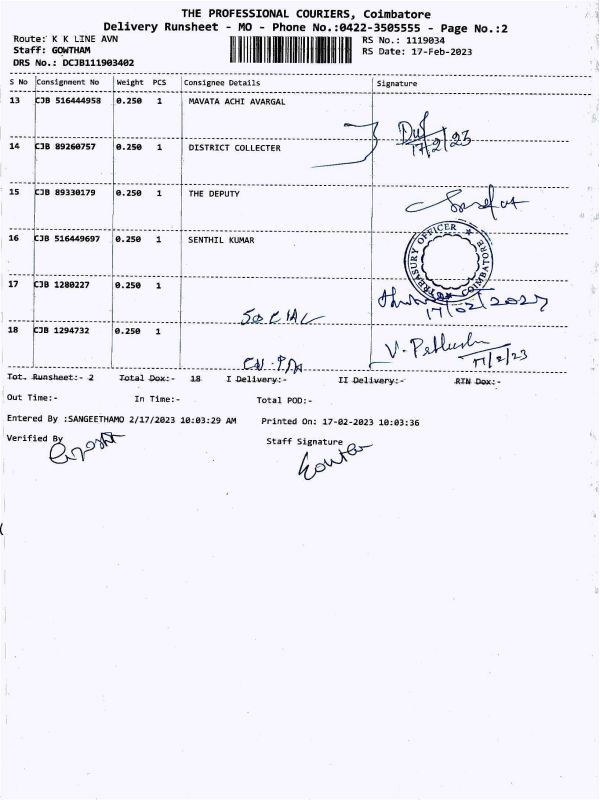 THE PROFESSIONAL COURIERS, Coimbatore
Delivery Runsheet - MO - Phone No.:0422-3505555 - Page No.:2
Route: K K LINE AVN RS No.: 1119034
Staff: GOWTHAM RS Date: 17-Feb-2023
DRS No.: DCJB111903402
S No Consignment No Weight PCS Consignee Details Signature
13 CJB 516444958 0.250 1 MAVATA ACHI AVARGAL
17/2/23
14 CJB 89260757 0.250 1 DISTRICT COLLECTER
15 CJB 89330179 0.250 1 THE DEPUTY
16 CJB 516449697 0.250 1 SENTHIL KUMAR
TREASURY OFFICER COIMBATORE
17 CJB 1280227 0.250 1
SOCIAL 17/02/2023
18 CJB 1294732 0.250 1
17/2/23
Tot. Runsheet:- 2 Total Dox:- 18 I Delivery:- II Delivery:- RTN Dox:-
Out Time:- In Time:- Total POD:-
Entered By :SANGEETHAMO 2/17/2023 10:03:29 AM Printed On: 17-02-2023 10:03:36
Verified By Staff Signature